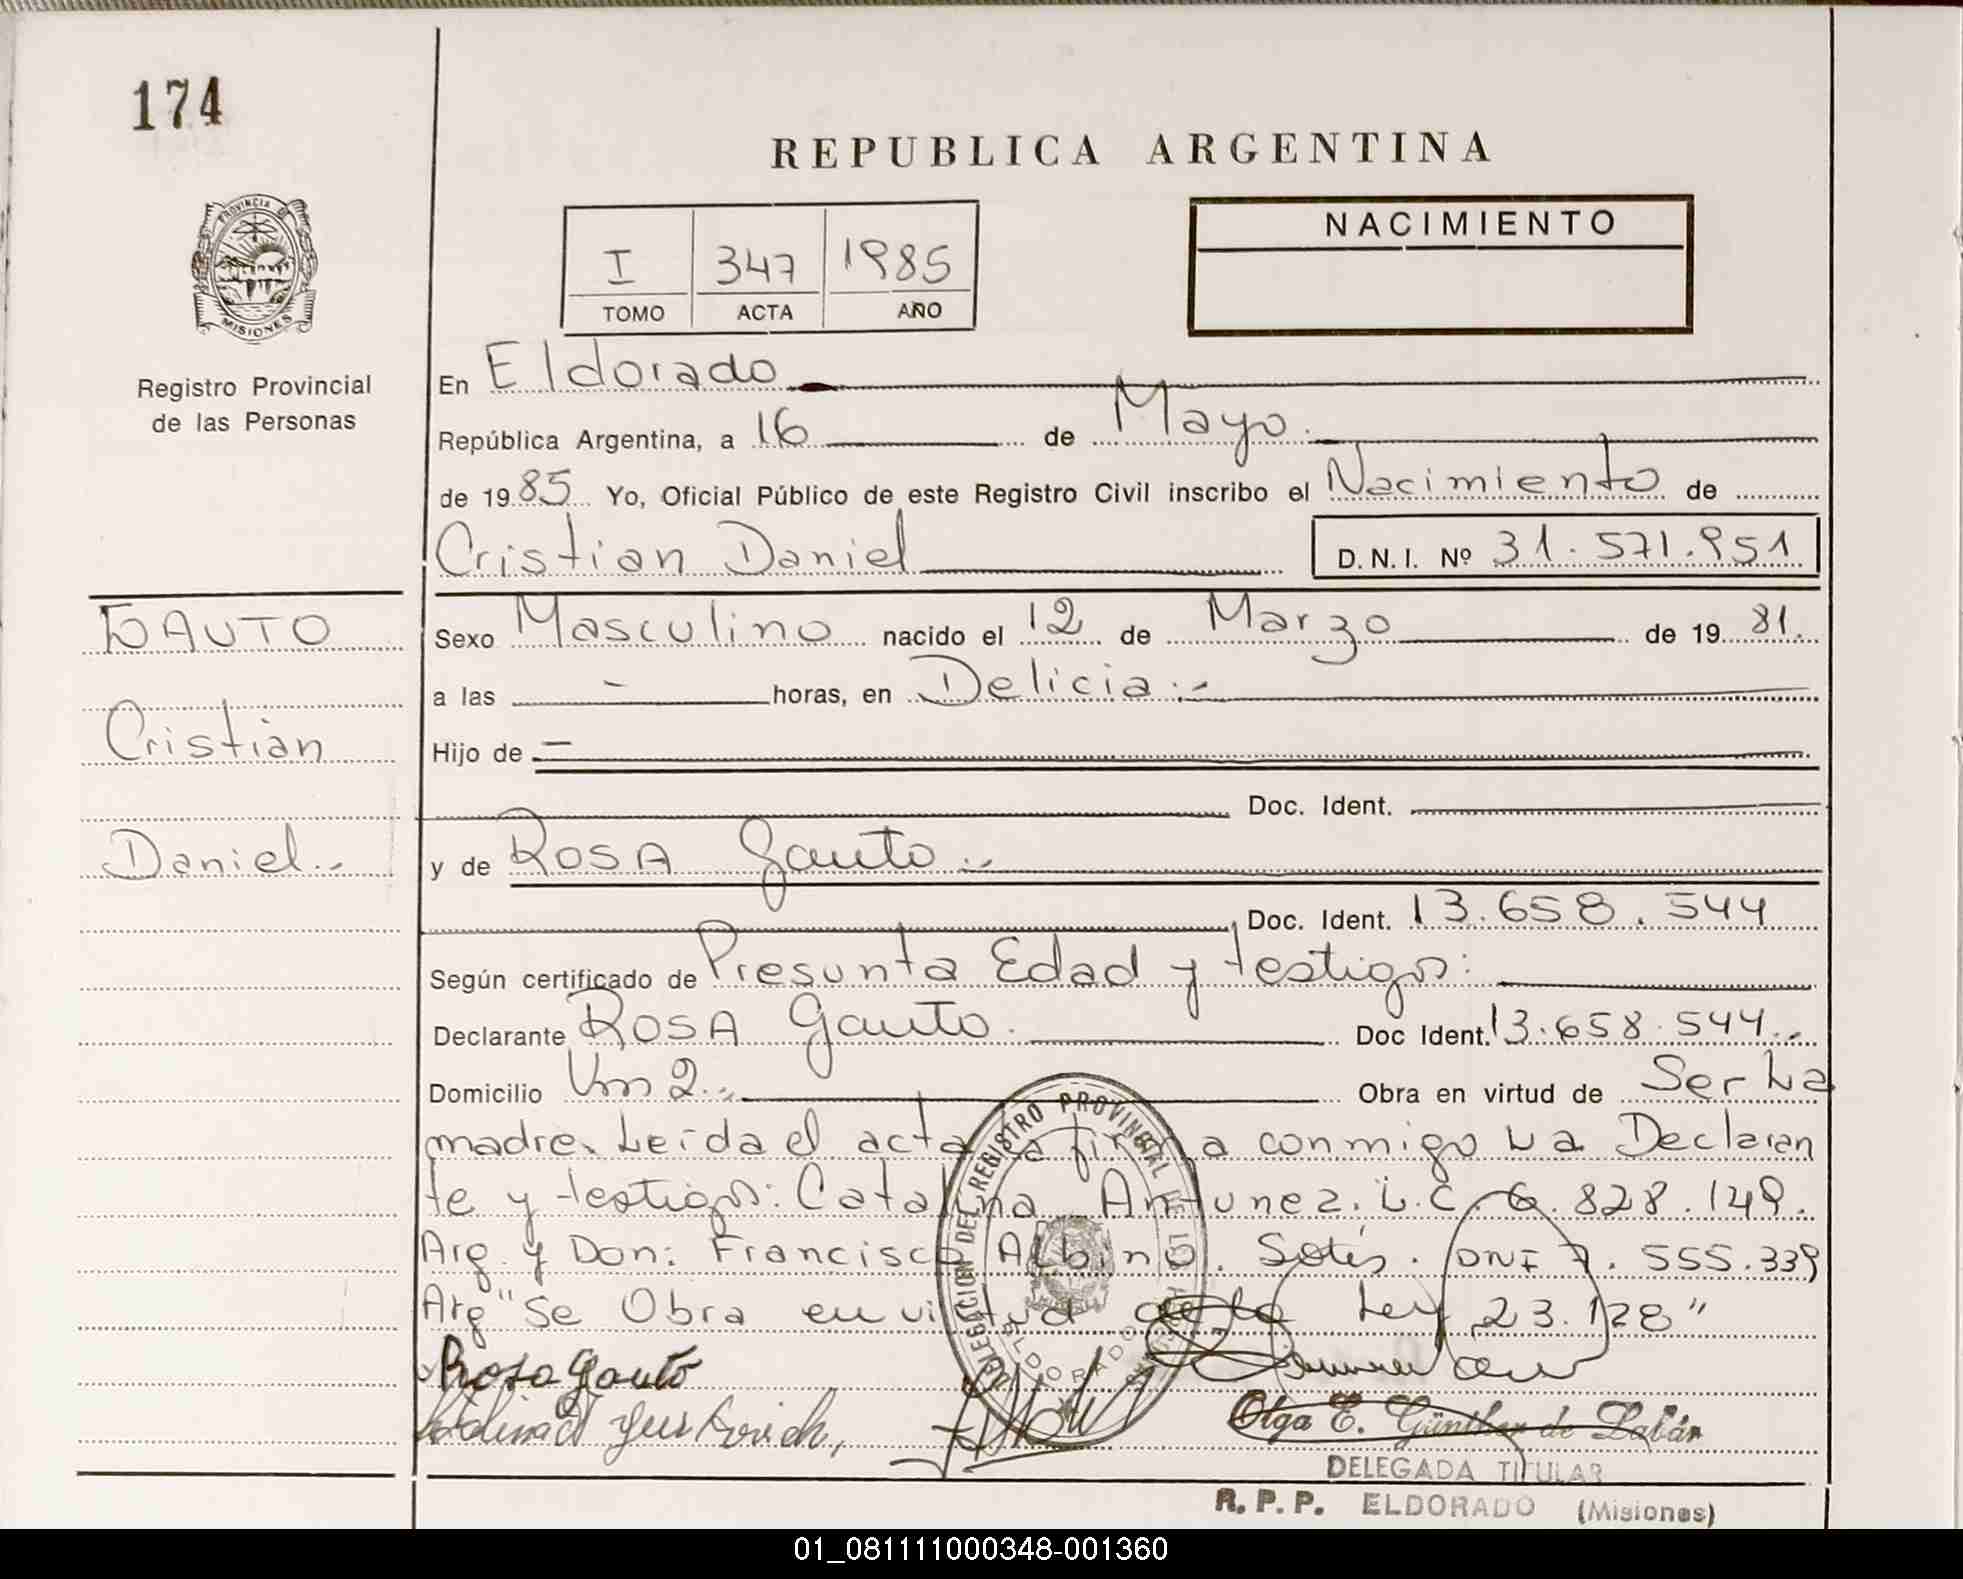 174
REPUBLICA ARGENTINA
PROVINCIA DE
MISIONES
NACIMIENTO
I 347 1985
TOMO ACTA AÑO
Registro Provincial
de las Personas
En Eldorado
República Argentina, a 16 de Mayo.
de 1985 Yo, Oficial Público de este Registro Civil inscribo el Nacimiento de
Cristian Daniel D.N.I. Nº 31.571.951
GAUTO
Cristian
Daniel.-
Sexo Masculino nacido el 12 de Marzo de 1981.
a las - horas, en Delicia.-
Hijo de -
Doc. Ident.
y de ROSA Gauto.-
Doc. Ident. 13.658.544
Según certificado de Presunta Edad y testigos:
Declarante ROSA Gauto. Doc Ident. 13.658.544.-
Domicilio Km 2.-, Obra en virtud de Ser La
madre. Leída el acta la firma conmigo La Declaran
te y testigos: Catalina Antunez. L.C. 6.828.149.
Arg. y Don: Francisco Albino. Solis. DNI 7.555.339
Arg "Se Obra en virtud de la Ley 23.128"
Rosa Gauto
DELEGACION DEL REGISTRO PROVINCIAL DE LAS PERSONAS
ELDORADO
Olga E. Günther de Labán
DELEGADA TITULAR
R.P.P. ELDORADO (Misiones)
01_081111000348-001360